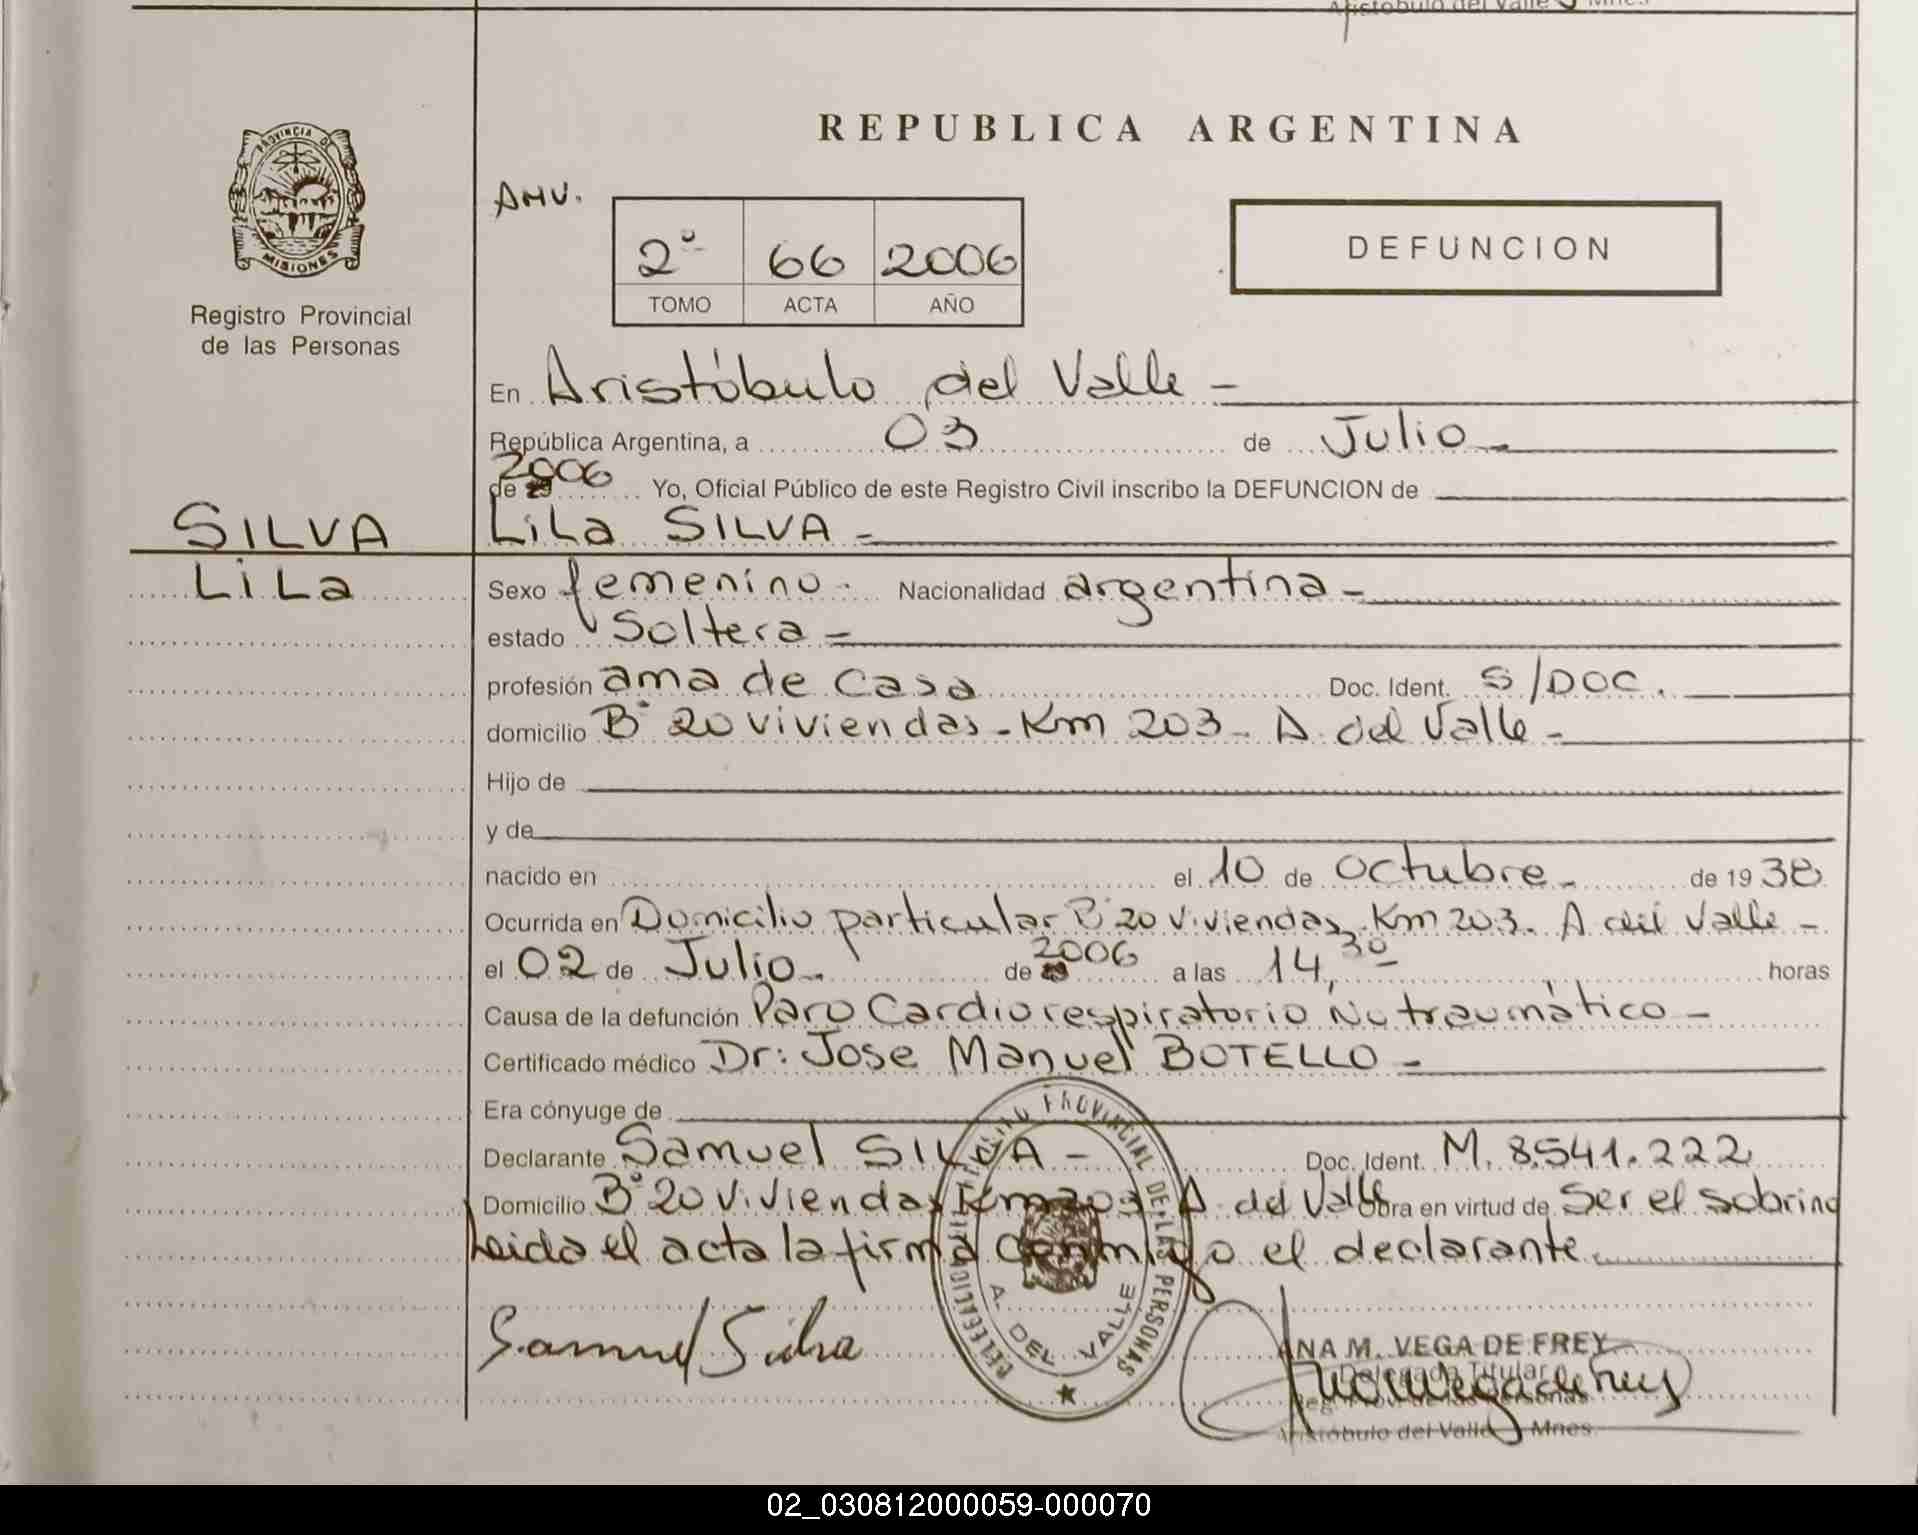 Aristóbulo del Valle Mnes
REPUBLICA ARGENTINA
PROVINCIA DE
MISIONES
Registro Provincial
de las Personas
AMV.
2º 66 2006
TOMO ACTA AÑO
DEFUNCION
En Aristóbulo del Valle -
República Argentina, a 03 de Julio -
de 2006 Yo, Oficial Público de este Registro Civil inscribo la DEFUNCION de
SILVA
LiLa
LiLa SILVA -
Sexo femenino. Nacionalidad argentina -
estado Soltera -
profesión ama de casa Doc. Ident. S/DOC.
domicilio Bº 20 viviendas - Km 203 - A. del Valle -
Hijo de
y de
nacido en el 10 de octubre - de 1938
Ocurrida en Domicilio particular Bº 20 viviendas. Km 203. A del Valle -
el 02 de Julio - de 2006 a las 14,30 horas
Causa de la defunción Paro Cardiorespiratorio No traumático -
Certificado médico Dr: Jose Manuel BOTELLO -
Era cónyuge de
Declarante Samuel SILVA - Doc. Ident. M. 8.541.222
Domicilio Bº 20 viviendas Km 203 A. del Valle Obra en virtud de Ser el sobrino
Leida el acta la firma conmigo el declarante.
Samuel Silva
DELEGACION REGISTRO PROVINCIAL DE LAS PERSONAS
A. DEL VALLE
ANA M. VEGA DE FREY
Delegada Titular
Reg. Prov. de las Personas
Aristóbulo del Valle Mnes
02_030812000059-000070